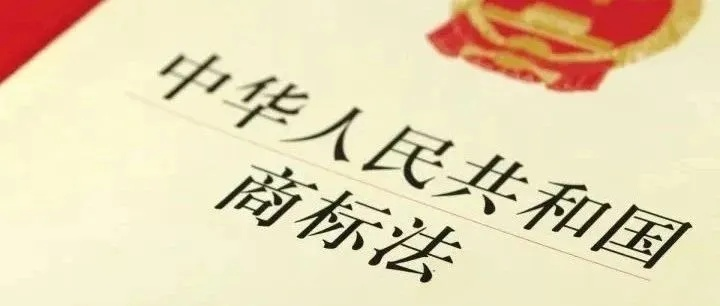 中华人民共和国
商标法